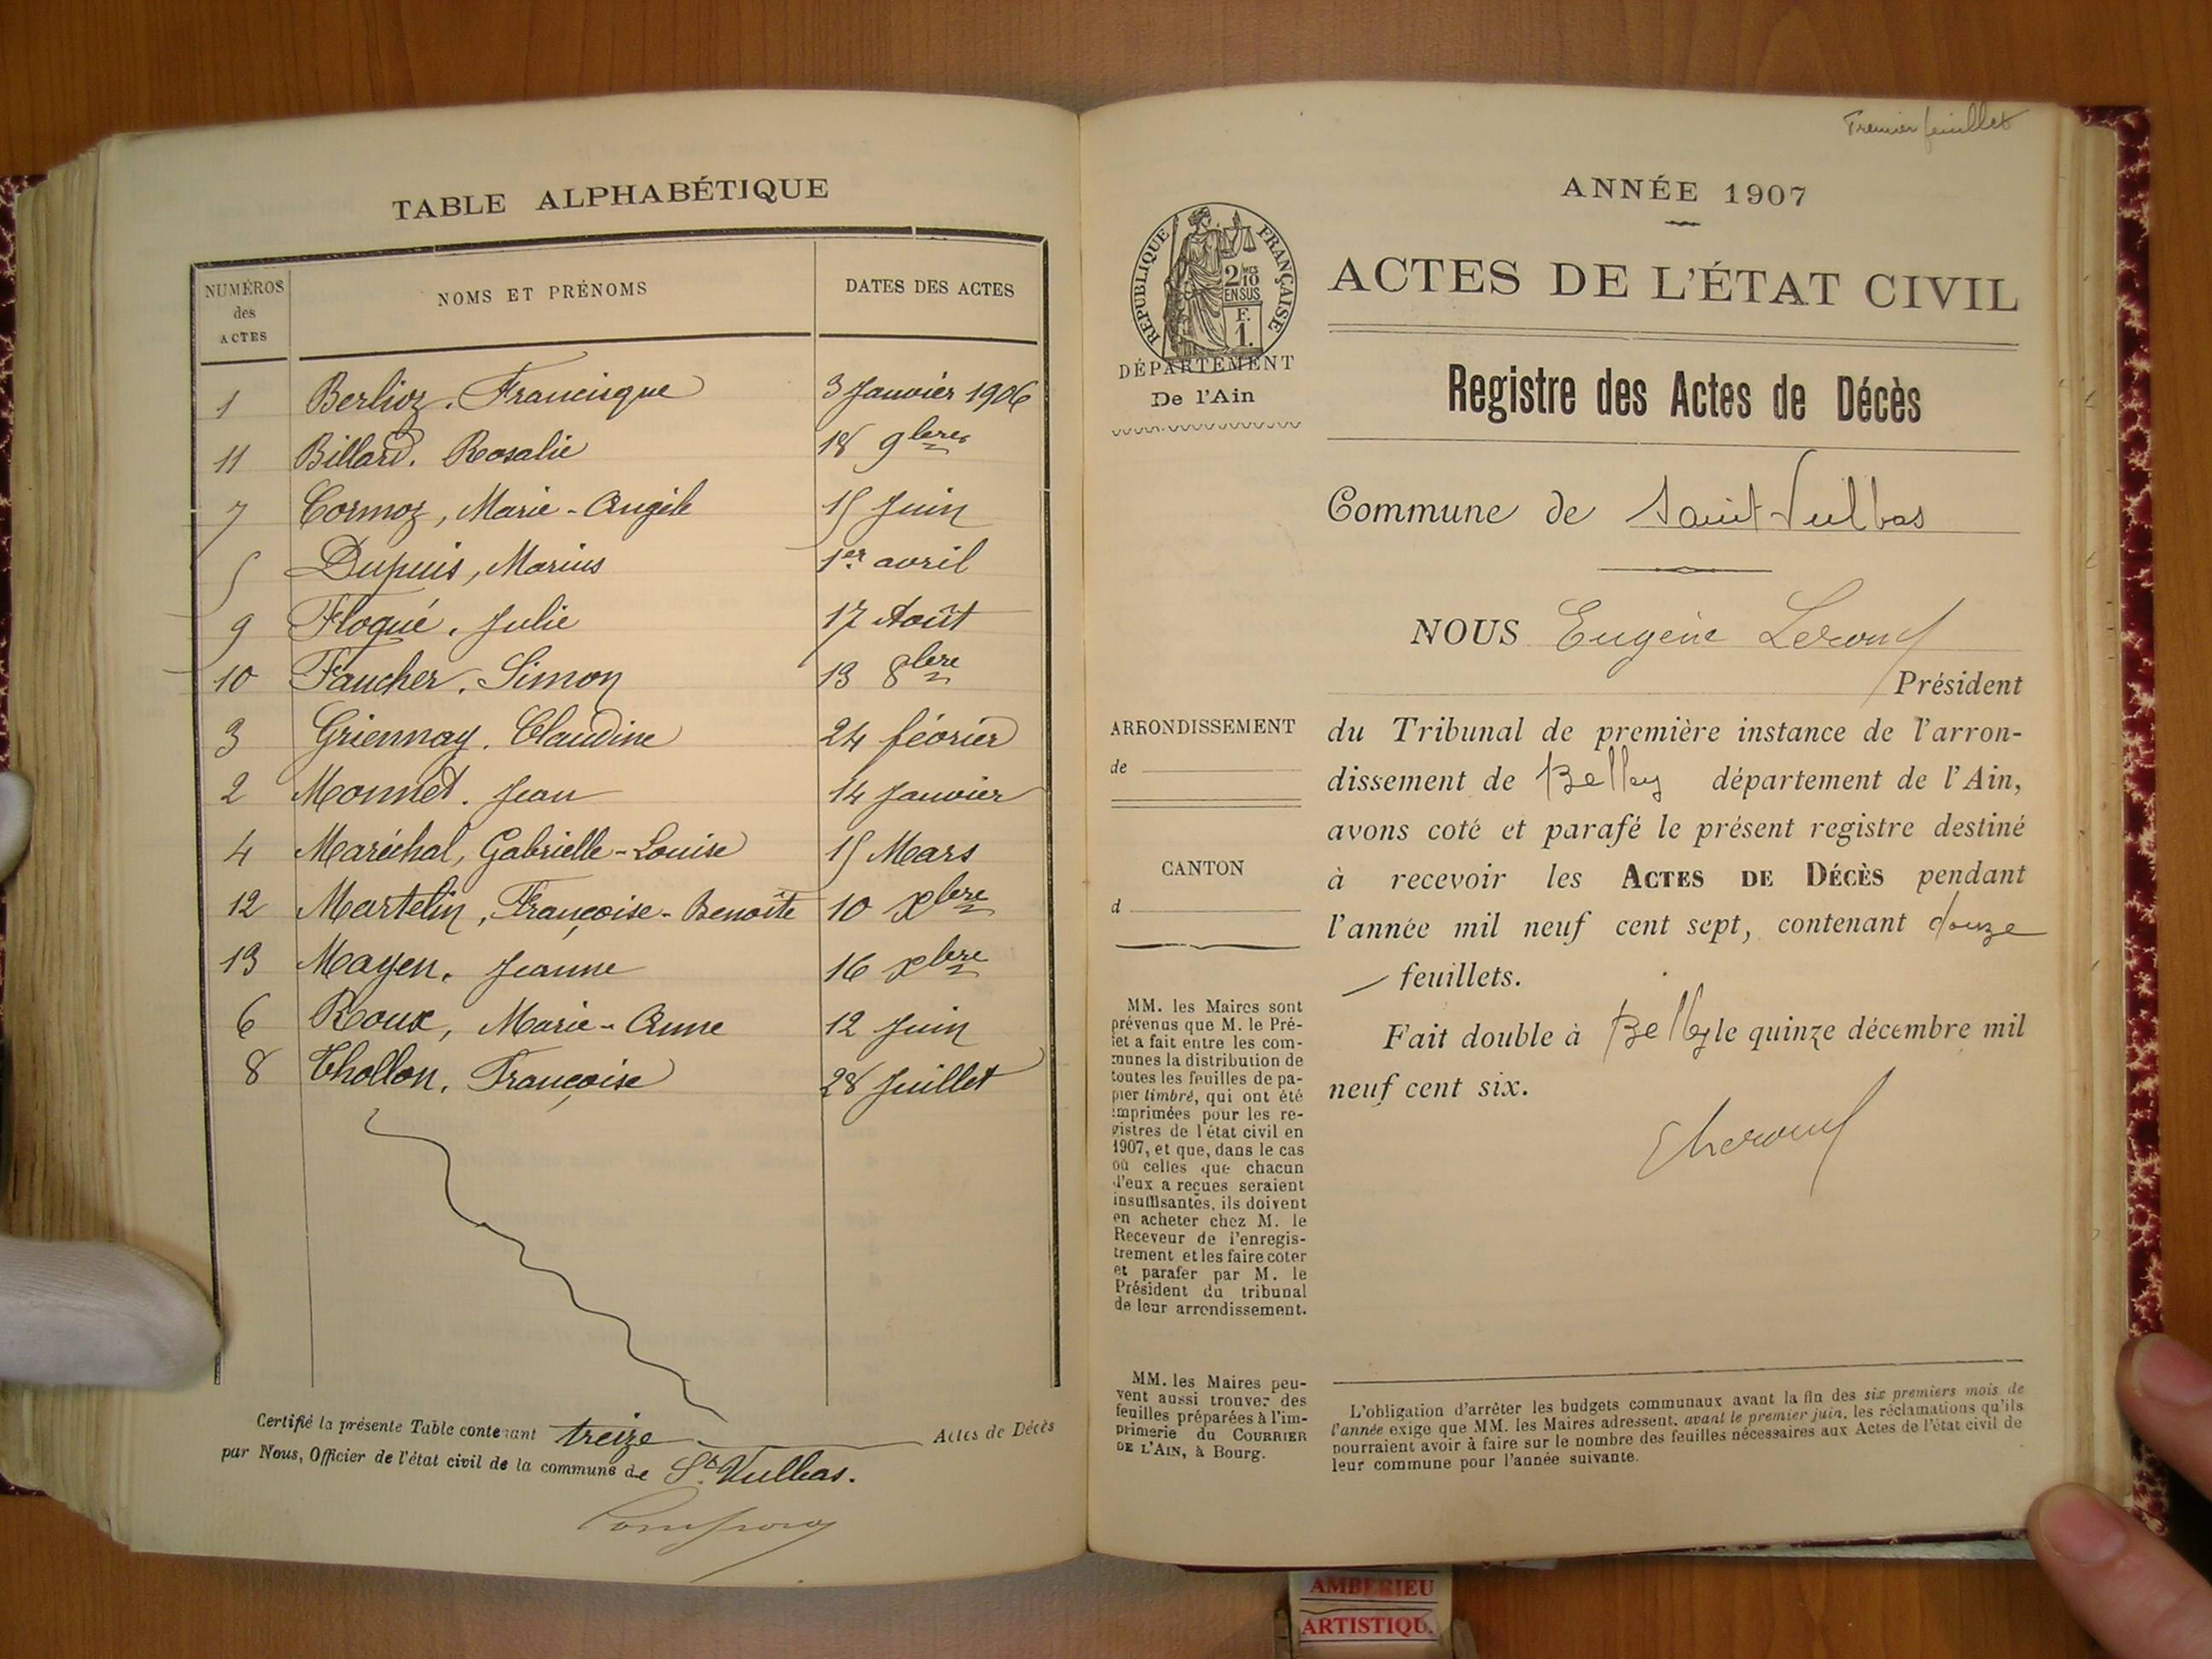 TABLE ALPHABÉTIQUE
NUMÉROS des ACTES NOMS ET PRÉNOMS DATES DES ACTES
1 Berlioz. Francisque 3 Janvier 1906
11 Billard. Rosalie 18 9bre
7 Cormoz, Marie-Angèle 15 Juin
5 Dupuis, Marius 1er avril
9 Floqué. Julie 17 Août
10 Faucher. Simon 13 8bre
3 Griennay. Claudine 24 février
2 Monnet. Jean 14 Janvier
4 Maréchal, Gabrielle-Louise 15 Mars
12 Martelin, Françoise-Benoîte 10 Xbre
13 Mayen. Jeanne 16 Xbre
6 Roux, Marie-Anne 12 Juin
8 Thollon. Françoise 28 Juillet
Certifié la présente Table contenant treize Actes de Décès
par Nous, Officier de l'état civil de la commune de St Vulbas.
Premier feuillet
ANNÉE 1907
RÉPUBLIQUE FRANÇAISE
2/10MES
EN SUS
F.
1.
DÉPARTEMENT
De l'Ain
ACTES DE L'ÉTAT CIVIL
Registre des Actes de Décès
Commune de Saint-Vulbas
NOUS Eugène
Président
du Tribunal de première instance de l'arron-
dissement de Belley département de l'Ain,
avons coté et parafé le présent registre destiné
à recevoir les ACTES DE DÉCÈS pendant
l'année mil neuf cent sept, contenant douze
feuillets.
Fait double à Belley le quinze décembre mil
neuf cent six.
ARRONDISSEMENT
de
CANTON
d
MM. les Maires sont
prévenus que M. le Pré-
fet a fait entre les com-
munes la distribution de
toutes les feuilles de pa-
pier timbré, qui ont été
imprimées pour les re-
gistres de l'état civil en
1907, et que, dans le cas
où celles que chacun
d'eux a reçues seraient
insuffisantes, ils doivent
en acheter chez M. le
Receveur de l'enregis-
trement et les faire coter
et parafer par M. le
Président du tribunal
de leur arrondissement.
MM. les Maires peu-
vent aussi trouver des
feuilles préparées à l'im-
primerie du COURRIER
DE L'AIN, à Bourg.
L'obligation d'arrêter les budgets communaux avant la fin des six premiers mois de
l'année exige que MM. les Maires adressent, avant le premier juin, les réclamations qu'ils
pourraient avoir à faire sur le nombre des feuilles nécessaires aux Actes de l'état civil de
leur commune pour l'année suivante.
AMBERIEU
ARTISTIQU